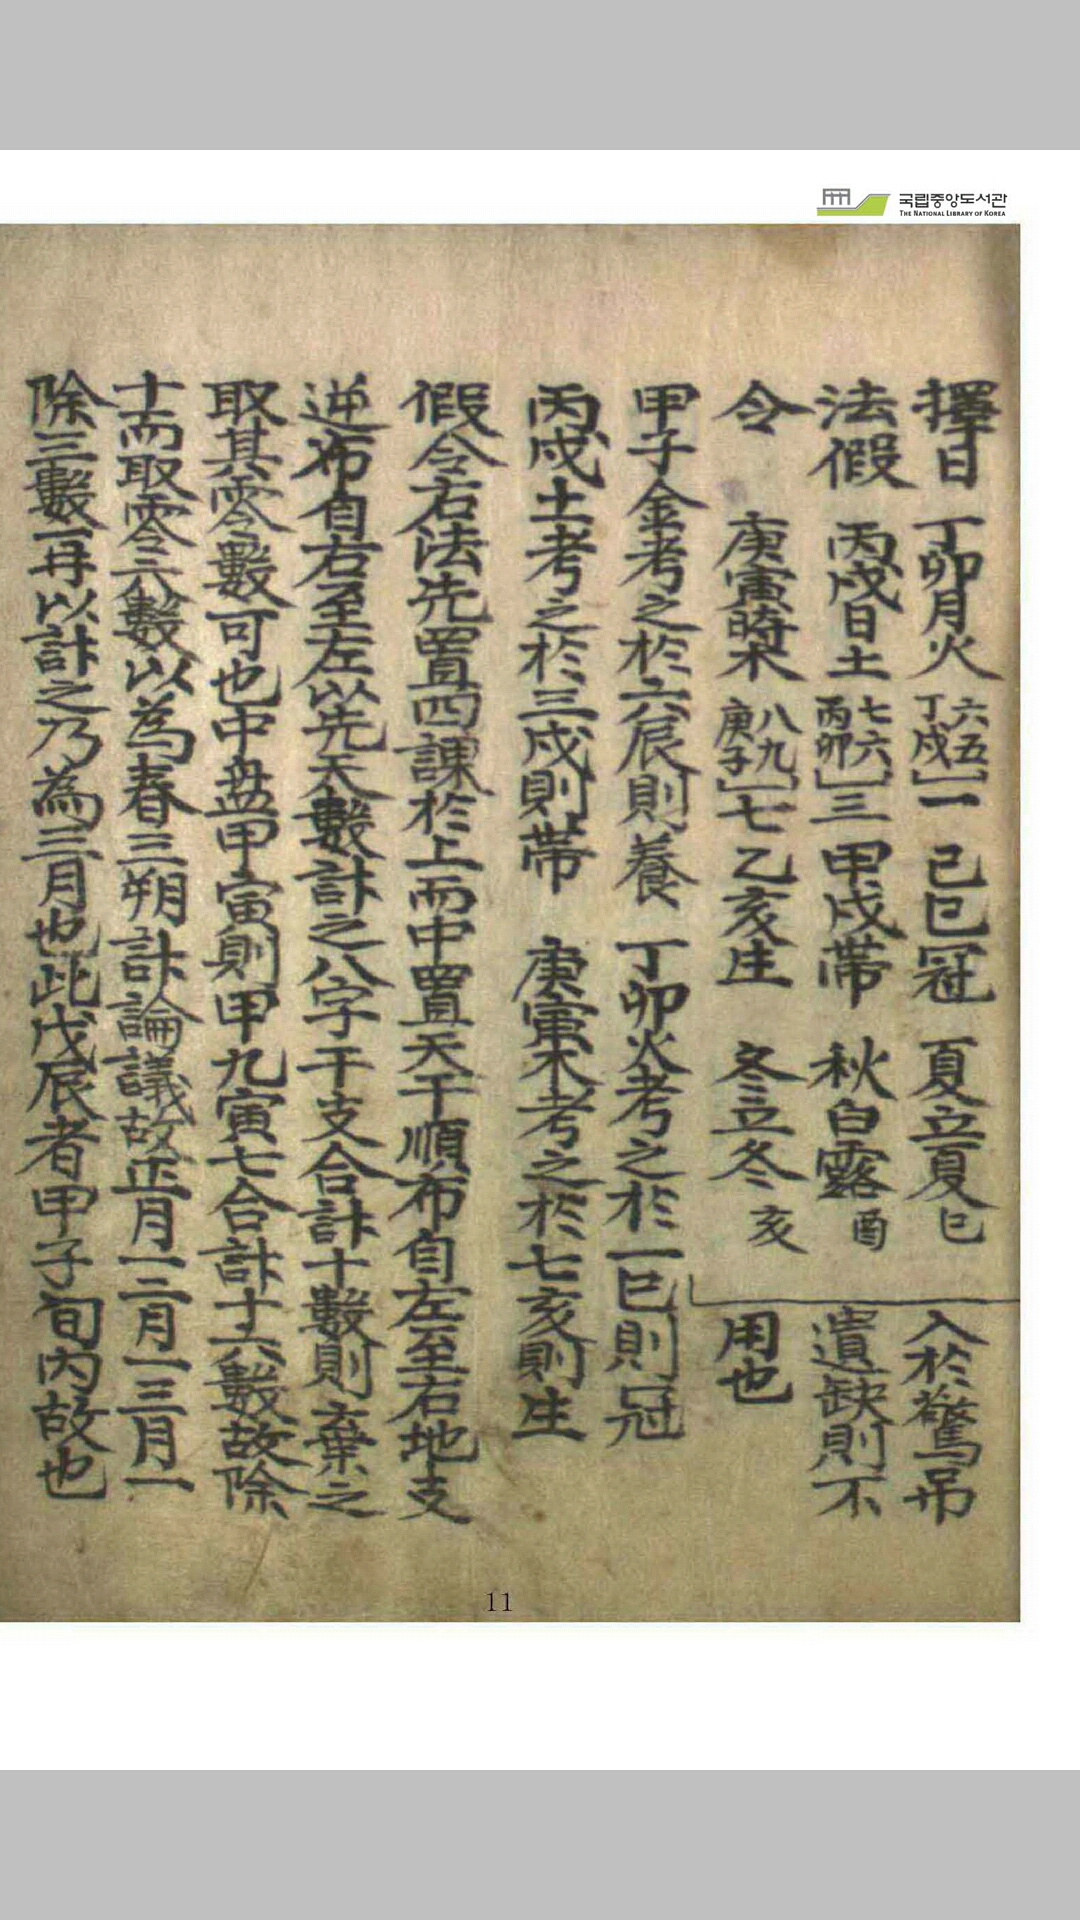 국립중앙도서관
THE NATIONAL LIBRARY OF KOREA
擇日 丁卯月火 六五丁戌 一 己巳冠 夏立夏巳 入於鶩吊
法假 丙戌日土 七六丙卯 三 甲戌帶 秋白露酉 遺缺則不
令 庚寅時木 八九庚子 七 乙亥生 冬立冬亥 用也
甲子金考之於六辰則養 丁卯火考之於一巳則冠
丙戌土考之於三戌則帶 庚寅木考之於七亥則生
假令右法先置四課於上而中置天干順布自左至右地支
逆布自右至左以先天數計之八字干支合計十數則棄之
取其零數可也中盘甲寅則甲九寅七合計十六數故除
十而取零六數以為春三朔計論議故正月一二月一三月一
除三數再以計之乃為三月也此戊辰者甲子旬內故也
11